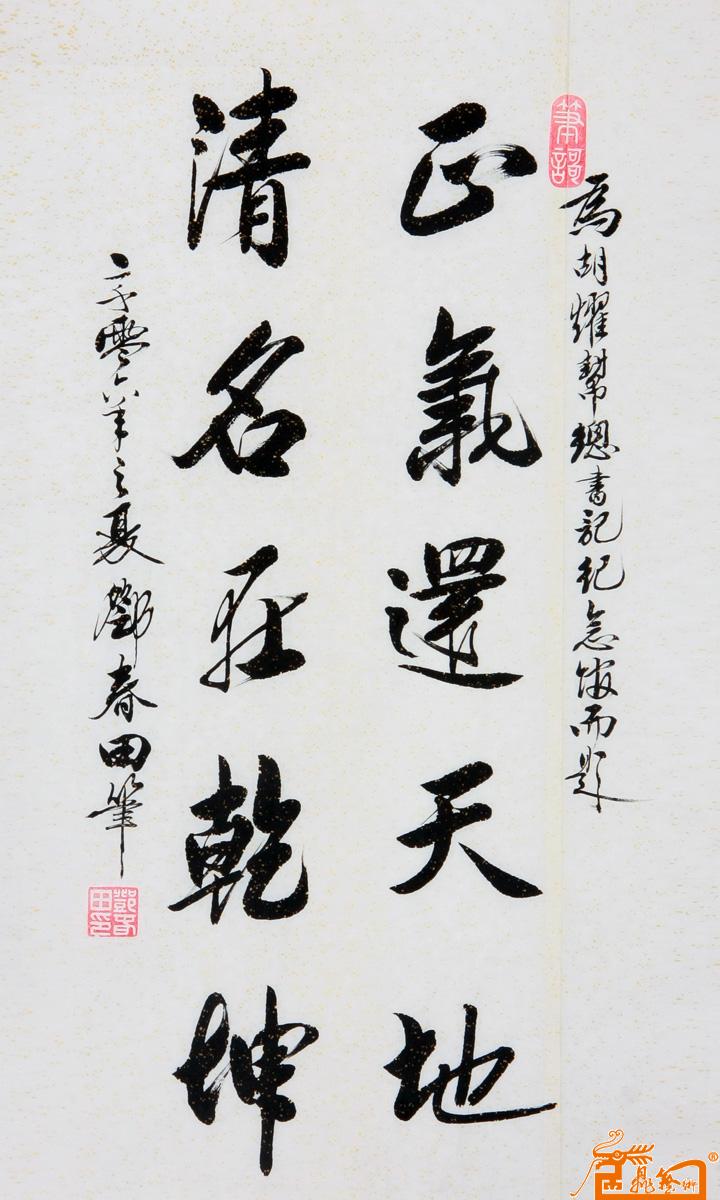 為胡耀幫總書記紀念館而題
正氣還天地
清名在乾坤
二千零六年之夏鄧春田筆
鄧春田印